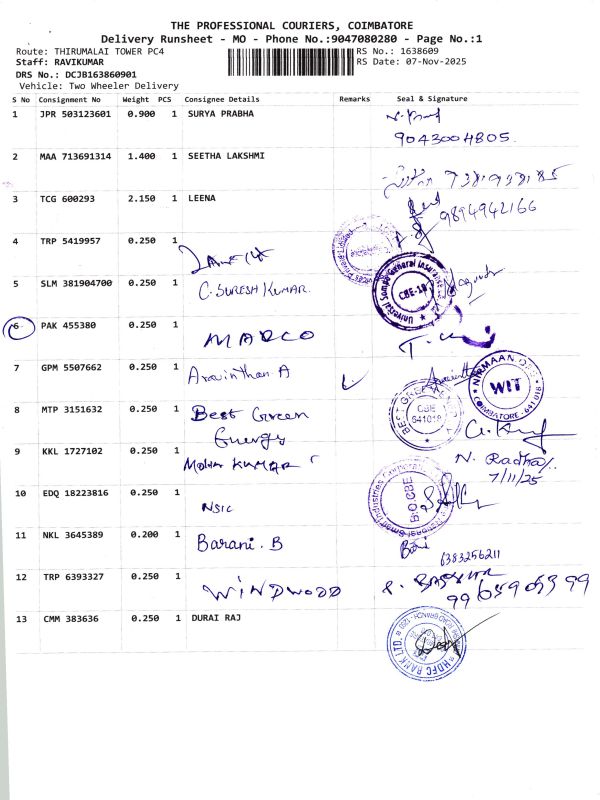 THE PROFESSIONAL COURIERS, COIMBATORE
Delivery Runsheet - MO - Phone No.:9047080280 - Page No.:1
Route: THIRUMALAI TOWER PC4 RS No.: 1638609
Staff: RAVIKUMAR RS Date: 07-Nov-2025
DRS No.: DCJB163860901
Vehicle: Two Wheeler Delivery
S No Consignment No Weight PCS Consignee Details Remarks Seal & Signature
1 JPR 503123601 0.900 1 SURYA PRABHA
9043004805.
2 MAA 713691314 1.400 1 SEETHA LAKSHMI
3 TCG 600293 2.150 1 LEENA 9894942166
4 TRP 5419957 0.250 1
5 SLM 381904700 0.250 1 C. SURESH KUMAR. Universal Sompo General Insurance CBE-18
6 PAK 455380 0.250 1 MARCO
7 GPM 5507662 0.250 1 Aravinthan A Aravinthan NIRMAAN WIT COIMBATORE - 641 018
8 MTP 3151632 0.250 1 Best Green Energy BEST GREEN CBE 641018
9 KKL 1727102 0.250 1 Mohan Kumar N. Radha
7/11/25
10 EDQ 18223816 0.250 1 NSIC National Small Industries Corporation B.O.CBE
11 NKL 3645389 0.200 1 Barani. B 6383256211
12 TRP 6393327 0.250 1 WINDWODD
13 CMM 383636 0.250 1 DURAI RAJ HDFC BANK LTD.